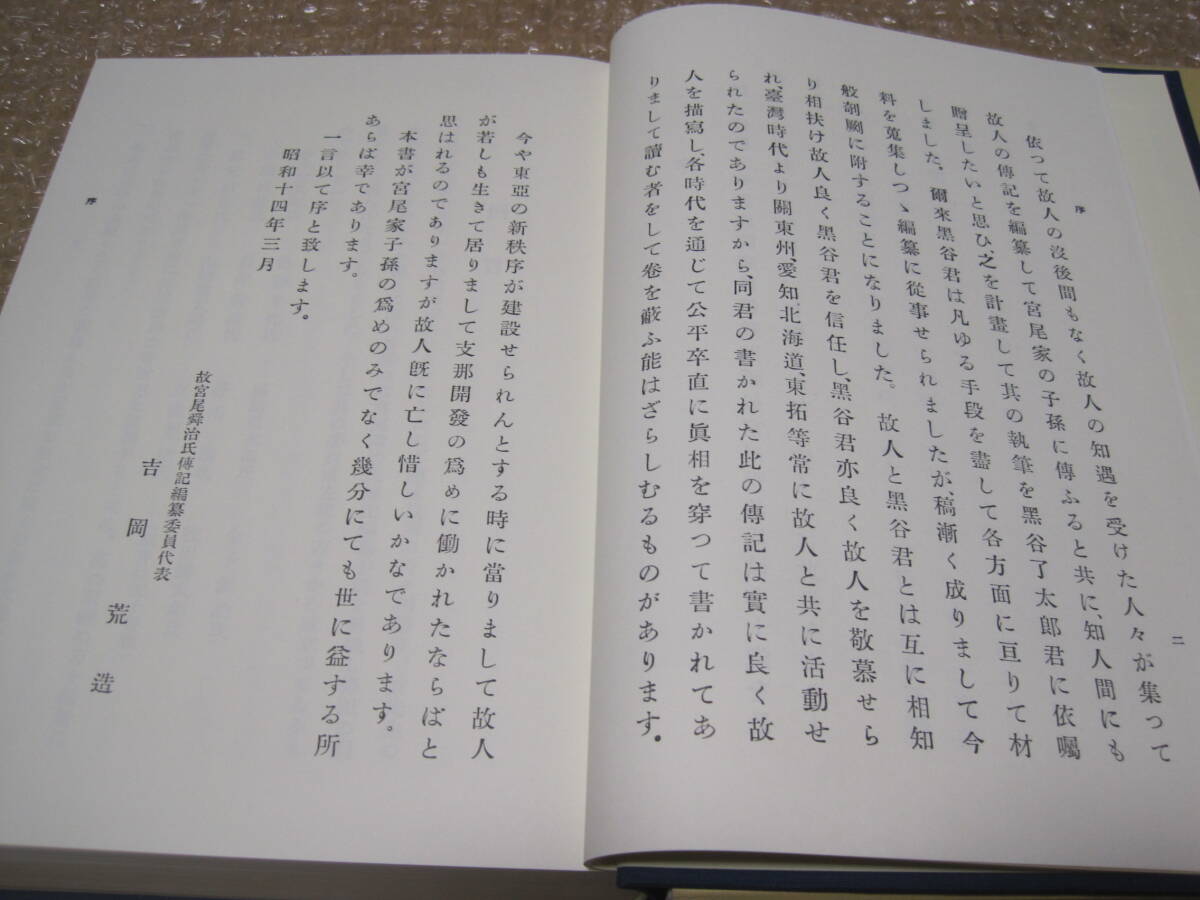 序
二
依つて故人の沒後間もなく故人の知遇を受けた人々が集つて
故人の傳記を編纂して宮尾家の子孫に傳ふると共に、知人間にも
贈呈したいと思ひ、之を計畫して其の執筆を黑谷了太郎君に依囑
しました。爾來黑谷君は凡ゆる手段を盡して各方面に亘りて材
料を蒐集しつゝ編纂に從事せられましたが、稿漸く成りまして今
般剞劂に附することになりました。故人と黑谷君とは互に相知
り相扶け故人良く黑谷君を信任し、黑谷君亦良く故人を敬慕せら
れ、臺灣時代より關東州、愛知、北海道、東拓等常に故人と共に活動せ
られたのでありますから、同君の書かれた此の傳記は實に良く故
人を描寫し、各時代を通じて公平卒直に眞相を穿つて書かれてあ
りまして讀む者をして卷を蔽ふ能はざらしむるものがあります。
今や東亞の新秩序が建設せられんとする時に當りまして故人
が若しも生きて居りまして支那開發の爲めに働かれたならばと
思はれるのでありますが故人旣に亡し惜しいかなであります。
本書が宮尾家子孫の爲めのみでなく幾分にても世に益する所
あらば幸であります。
一言以て序と致します。
昭和十四年三月
故宮尾舜治氏傳記編纂委員代表
吉岡荒造
序